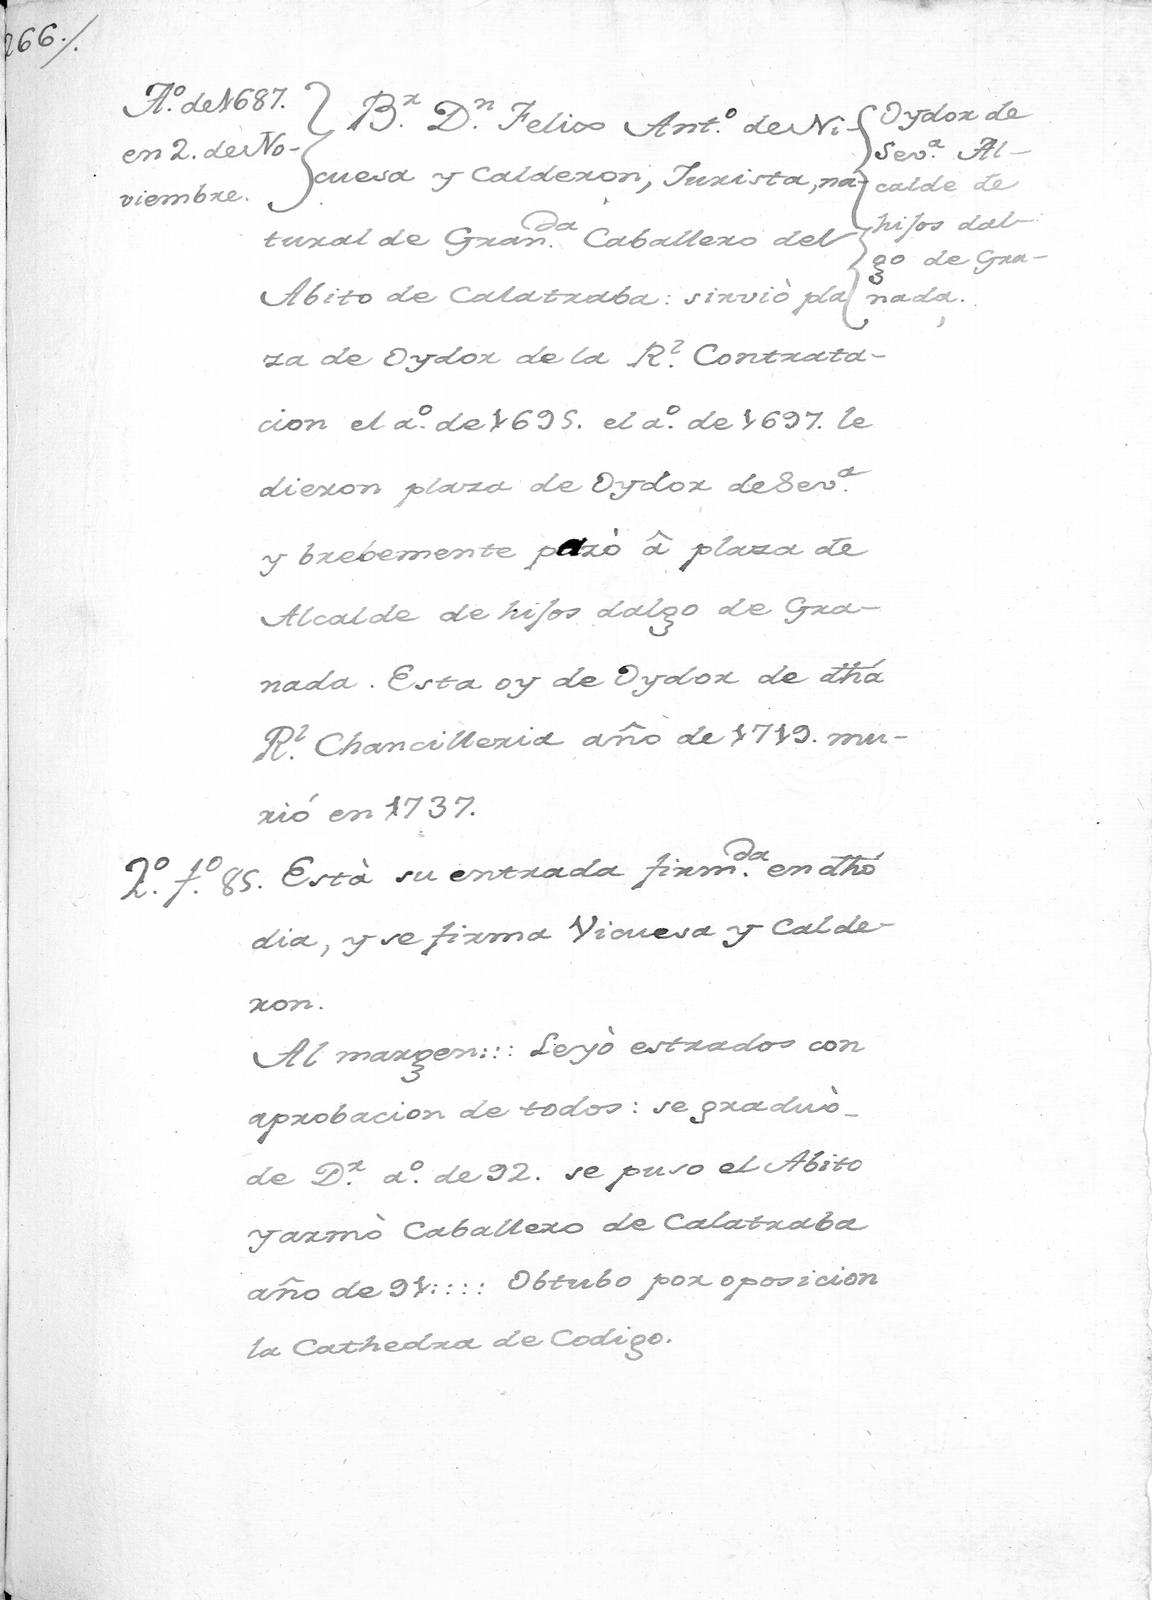 266./.
A.º de 1687.
en 2. de No-
viembre.
B.r D.n Felix Ant.º de Ni-
cuesa y Calderon, Jurista, na-
tural de Gran.da Caballero del
Abito de Calatraba: sirviò pla
za de Oydor de la R.l Contrata-
cion el a.º de 1695. el a.º de 1697. le
dieron plaza de Oydor de Sev.a
y brebemente pazò â plaza de
Alcalde de hijos dalgo de Gra-
nada. Esta oy de Oydor de dhá
R.l Chancilleria año de 1719. mu-
rió en 1737.
Oydor de
Sev.a Al-
calde de
hijos dal-
go de Gra-
nada.
2.º f.º 85. Està su entrada firm.da en dhó
dia, y se firma Vicuesa y Calde-
ron.
Al margen::: Leyò estrados con
aprobacion de todos: se graduò-
de D.r a.º de 92. se puso el Abito
y armò Caballero de Calatraba
año de 91:::: Obtubo por oposicion
la Cathedra de Codigo.